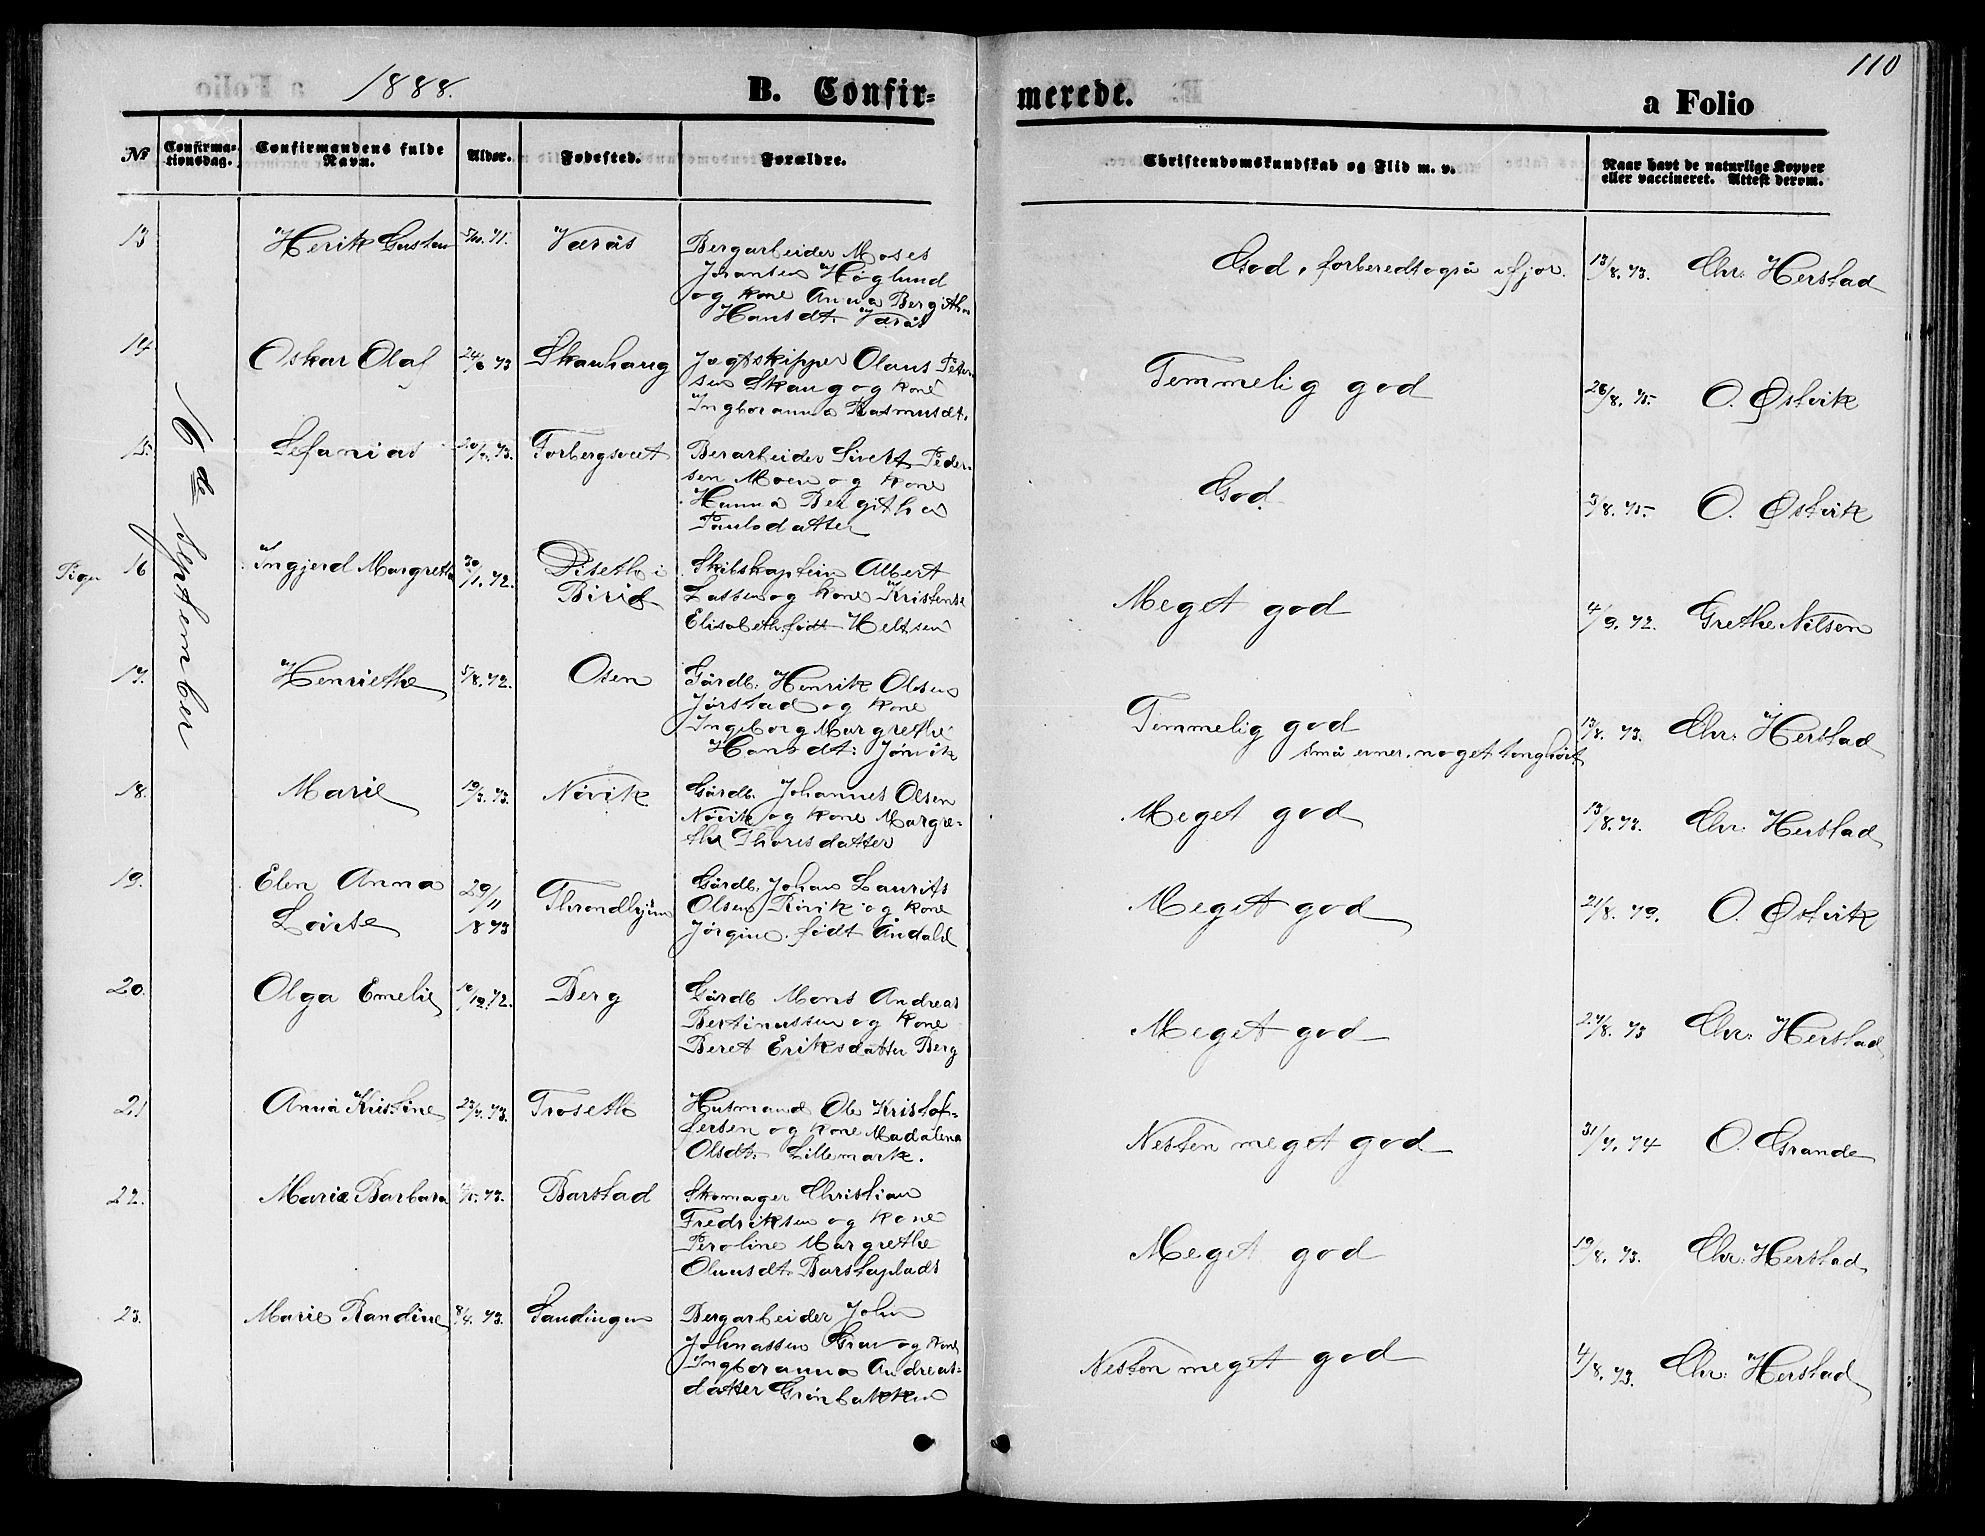 110
1888.
B. Confir-
merede.
a Folio
No
Confirma-
tionsdag.
Confirmandens fulde
Navn.
Alder.
Fødested.
Forældre.
Christendomskundskab og Flid m. v.
Naar havt de naturlige Kopper
eller vaccineret. Attest derom.
6de September
13
Henrik Gustav
Værås
Bergarbeider Moses
Høglund
og kone Anna Bergithe
Hansdt. Værås
God, forberedt også ifjor.
13/8. 73. Chr. Herstad
14
Oskar Olaf
24/6 73
Skauhaug
Jægtskipper Olaus Peter
sen Skaug og kone
Ingboranna Rasmusdt.
Temmelig god
26/8. 75. O. Østvik
15.
Sefanias
Forbergsvect
Berarbeider Sivert Peder-
sen Moen og kone
Hanna Bergitha
Paulsdatter
God.
3/8. 75. O. Østvik
Piger 16
Ingjerd Margrethe
30/1. 72.
Diseth i
Birid
Skibskaptein Albert
Lassen og kone Kristense
Elisabeth født Heltsen
Meget god
4/9. 72. Grethe Nilsen
17.
Henriethe
5/8. 72.
Osen
Gårdb. Henrik Olsen
Jørstad og kone
Ingeborg Margrethe
Hansdt:
Temmelig god
små evner, noget tunghørt
13/8. 73. Chr: Herstad
18.
Marie
10/3. 73.
Növik
Gårdb. Johannes Olsen
Növik og kone Margre-
the Thorisdatter
Meget god
13/8. 73. Chr: Herstad
19.
Elen Anna
Lovise
29/11
1873
Throndhjem
Gårdb. Johan Laurits
Olsen Rövik og kone
Jörgine født Andahl
Meget god
21/8. 79. O. Østvik
20.
Olga Emelie
10/12. 72.
Berg
Gårdb Mons Andreas
Bertinussen og kone
Beret Eriksdatter Berg
Meget god
24/8. 73 Chr: Herstad
21
Anna Kristine
Troseth
Husmand Ole Kristof-
fersen og kone Madalena
Olsdt. Lillemark.
Nesten meget god
31/7. 74 O. Grande
22.
Marie Barbara
Barstad
Skomager Christian
Fredriksen og kone
Peroline Margrethe
Olausdt. Barstaplads
Meget god
19/8. 73. Chr: Herstad
23.
Marie Randine
8/4. 73.
Sandingen
Bergarbeider John
Johnassen Grav og kone
Ingboranna Andreas-
datter Grönbakken
Nesten meget god
4/8. 73. Chr: Herstad